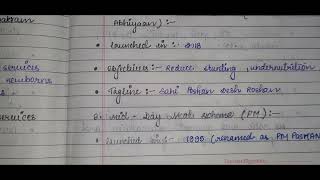 akram
services
newborns
services
Abhiyaan) :-
• launched in :- 2018
• Objectives :- Reduce stunting, undernutrition
• Tagline :- Sahi Poshan Desh Roshan
8. Mid - Day Meal Scheme (PM) :-
launched in :- 1995 (renamed as PM POSHAN